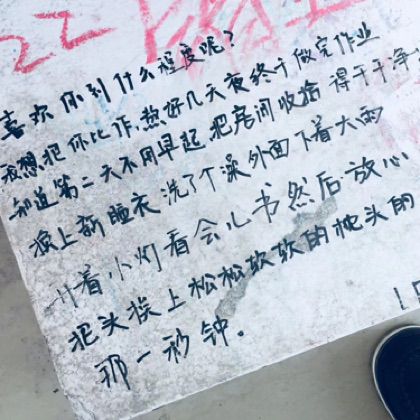 喜欢你到什么程度呢?
我想把你比作,熬好几天夜终于做完作业
知道第二天不用早起 把房间收拾得干干净净
换上新睡衣 洗了个澡 外面下着大雨
开着小灯看会儿书然后放心
把头挨上松松软软的枕头的
那一秒钟.